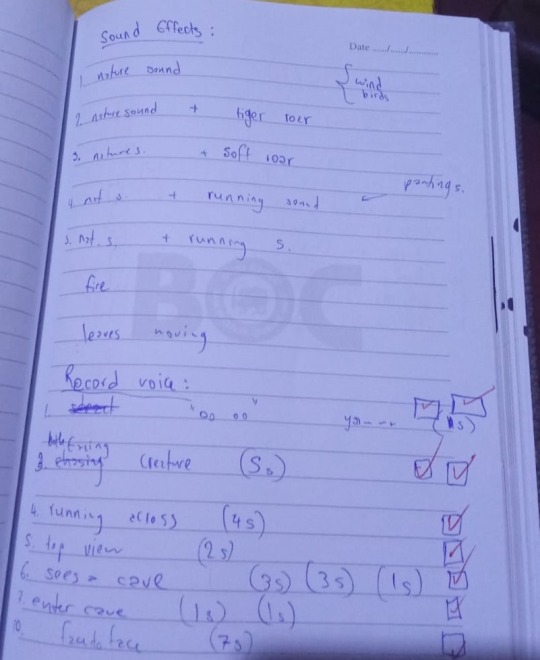 Sound Effects :
Date ..../..../............
1. nature sound { wind
birds
2. nature sound + tiger roar
3. nature s. + soft roar
pantings.
4. nat s. + running sound
5. nat. s. + running s.
fire
leaves moving
BOC
Record voice :
1. "oo oo"
3. creature (5s)
4. running across (4s)
5. top view (2s)
6. sees a cave (3s) (3s) (1s)
7. enter cave (1s) (1s)
10. (7s)